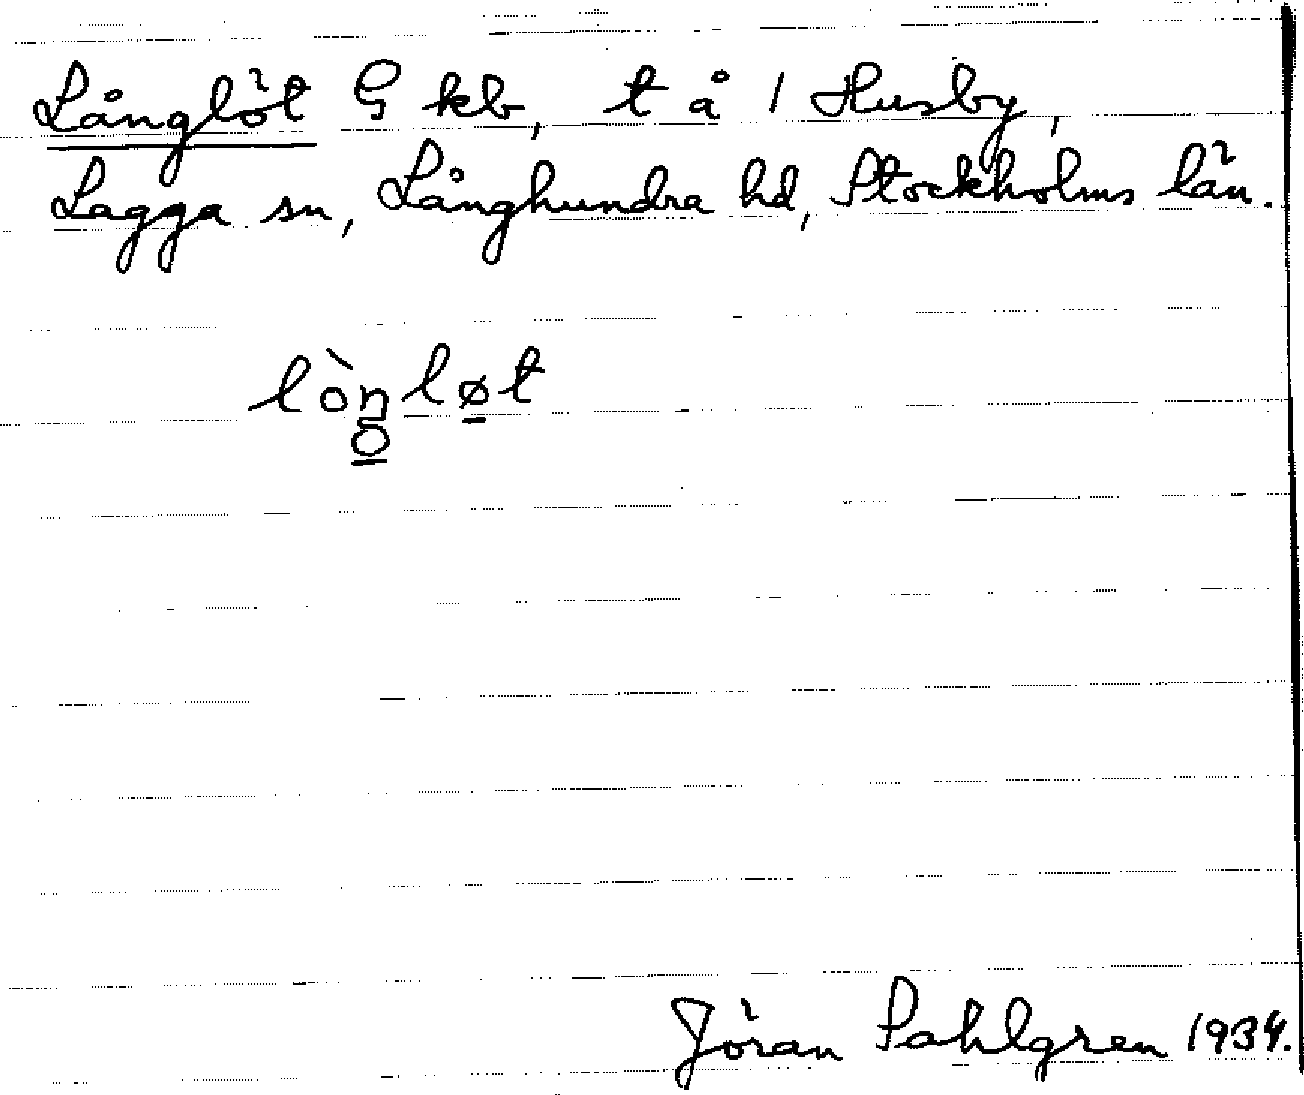 Långlöt G kb, t å 1 Husby,
Lagga sn, Långhundra hd, Stockholms län.
lòŋløt
Jöran Sahlgren 1934.